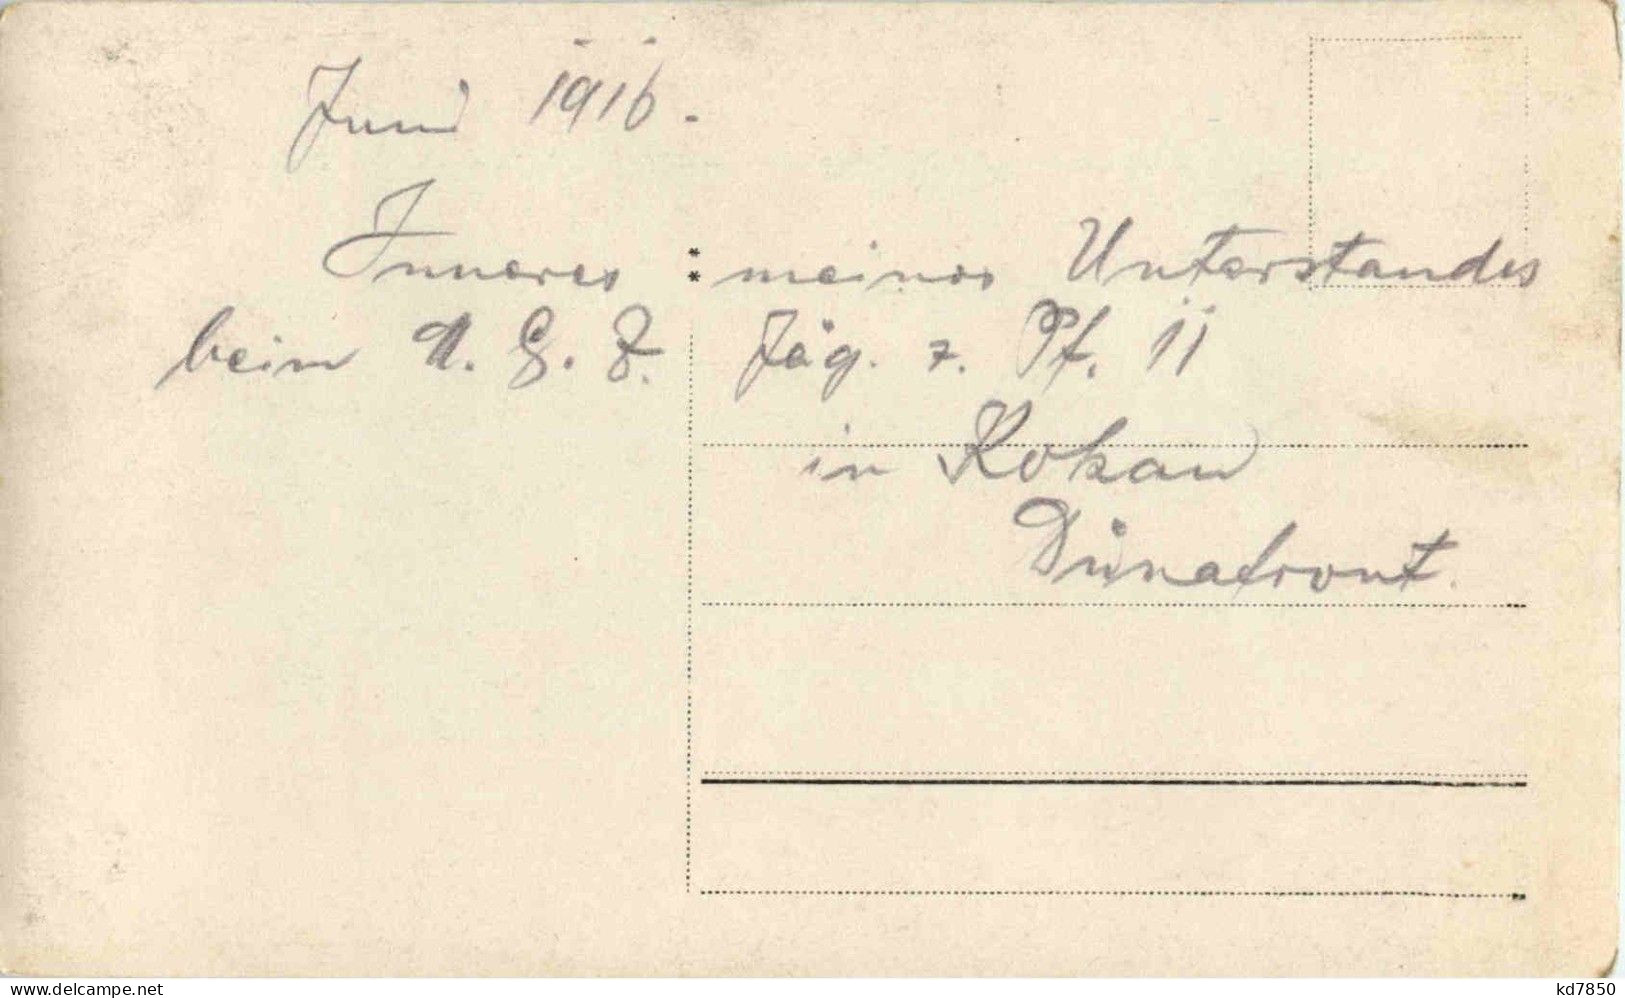 Juni 1916.
Inneres meines Unterstandes
beim M. G. Z. Jäg. z. Pf. 11
in Kokau
Dünafront.
www.delcampe.net
kd7850